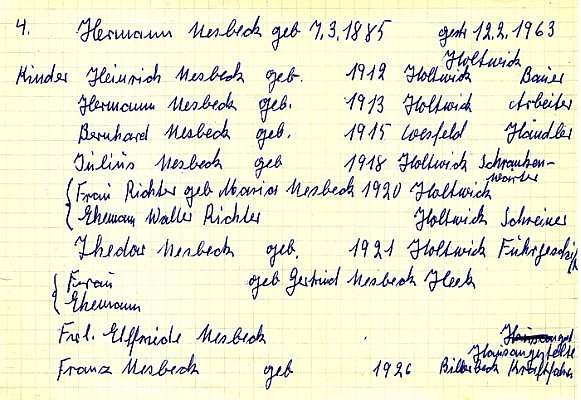 4. Hermann Nesbeck geb 7.3.1885 gest 12.2.1963
Holtwick
Kinder Heinrich Nesbeck geb. 1912 Holtwick Bauer
Hermann Nesbeck geb. 1913 Holtwick Arbeiter
Bernhard Nesbeck geb. 1915 Coesfeld Händler
Julius Nesbeck geb 1918 Holtwick Schranken-
wärter
Frau Richter geb Maria Nesbeck 1920 Holtwick
Ehemann Walter Richter Holtwick Schreiner
Thedor Nesbeck geb. 1921 Holtwick Fuhrgeschäft
Frau geb Gertrud Nesbeck Heek
Ehemann
Frl. Elffriede Nesbeck
Hausangestellte
Franz Nesbeck geb 1926 Billerbeck Kraftfahrer